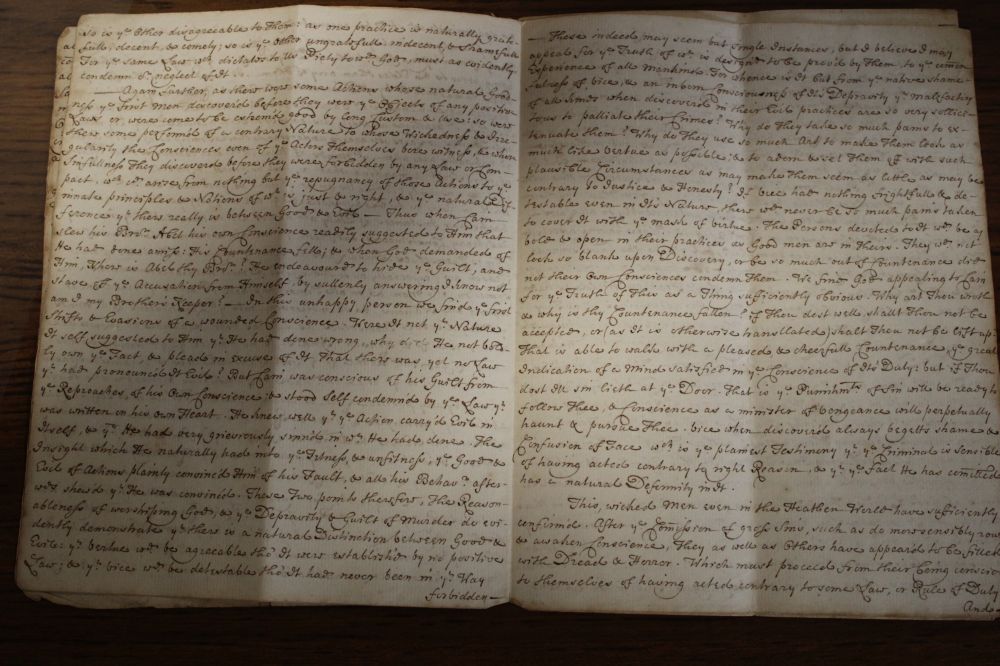 so is yͤ Other disagreeable to Them: as one practice is naturally grate-
full, decent, & comely; so is yͤ other ungratefull, indecent, & shamefull
For yͤ same Law wͨͪ dictates to us Piety towͩˢ God, must as evidently
condemn oͬ neglect of It.
— Again Farther, as there were some Actions whose natural Good-
ness yͤ First men discovered before They were yͤ Objects of any positive
Law, or were come to be esteemd good by long Custom & Use: so were
there some perform'd of a contrary Nature to whose Wickedness & Irre-
gularity the Consciences even of yͤ Actors Themselves bere witness, & whose
sinfullness They discovered before they were forbidden by any Law or Com-
pact, wͨͪ cͩ arise from nothing but yͤ repugnancy of those Actions to yͤ
innate principles & Notions of wͭ is just & right, & yͤ natural Dif-
ference yͭ there really is between Good & Evil — Thus when Cain
slew his Broͬ Abel his own Conscience readily suggested to Him that
He had done amiss: His Countenance fell; & when God demanded of
Him, Where is Abel thy Broͬ? He endeavourd to hide yͤ Guilt, and
stave of yͤ Accusation from Himself, by sullenly answering I know not
am I my Brother's Keeper? — In this unhappy person we find yͤ first
Shifts & Evasions of a wounded Conscience. Were It not yͤ Nature
It self suggested to Him yͭ He had done wrong, why did He not bold-
ly own yͤ Fact, & plead in excuse of It, That there was yet no Law
yͭ had pronounc'd It Evil? But Cain was conscious of his Guilt from
yͤ Reproaches of his own Conscience & stood self condemn'd by yͤ Law yͭ
was written in his own Heart. He knew well yͭ yͤ Action carry'd Evil in
Itself, & yͭ He had very grievously sinn'd in wͭ He had done. The
Insight which He naturally had into yͤ Fitness, & unfitness, yͤ Good &
Evil of Actions plainly convinc'd Him of his Fault, & all his Behavͬ after-
wͩˢ shew'd yͭ He was convinc'd. These Two points therefore, The Reason-
ableness of worshiping God, & yͤ Depravity & Guilt of Murder do evi-
dently demonstrate yͭ there is a natural Distinction between Good &
Evil: yͭ vertue wͩ be agreeable tho' It were establish'd by no positive
Law; & yͭ vice wͩ be detestable tho' It had never been in yͭ Way
forbidden —
— These indeed may seem but single Instances, but I believe I may
appeal for yͤ Truth of wͭ is design'd to be prov'd by Them to yͤ
Experience of all Mankind. For whence is It but from yͤ native shame-
fulness of vice, & an inborn Consciousness of It's Depravity yͭ malefactors
of all Times when discovered in their Evil practices are so very sollici-
tous to palliate their Crimes? Why do They take so much pains to ex-
tenuate Them? Why do They use so much Art to make Them look as
much like virtue as possible; & to adorn & set Them off with such
plausible Circumstances as may make them seem as little as may be
contrary to Justice & Honesty? If vice had nothing frightfull & de-
testable even in It's Nature there wͩ never be so much pains taken
to cover It with yͤ mask of virtue. The Persons devoted to It wͩ be as
bold & open in their practices as Good men are in Theirs. They wͩ not
look so blank upon Discovery, or be so much out of Countenance did
not their own Consciences condemn Them. We find God appealing to Cain
for yͤ Truth of This as a Thing sufficiently obvious. Why art Thou wroth
& why is thy Countenance fallen? If Thou dost well, shalt Thou not be
accepted, or (as It is otherwise translated) shalt Thou not be lift up
That is able to walk with a pleased & cheerfull Countenance, yͤ great
Indication of a Mind satisfied in yͤ Conscience of It's Duty: but if Thou
dost Ill sin lieth at yͤ Door. That is yͤ Punishmͭ of Sin will be ready to
follow Thee, & Conscience as a minister of vengeance will perpetually
haunt & pursue Thee. Vice when discovered always begetts shame &
Confusion of Face wͨͪ is yͤ plainest Testimony yͭ yͤ Criminal is sensible
of having acted contrary to right Reason, & yͭ yͤ Fact He has comitted
has a natural Deformity in It.
This, wicked Men even in the Heathen World have sufficiently
confirm'd. After yͤ Comission of gross Sins, such as do more sensibly rowse
& awaken Conscience, They as well as Others have appear'd to be filled
with Dread & Horror. Which must proceed from their being conscious
to themselves of having acted contrary to some Law, or Rule of Duty
And